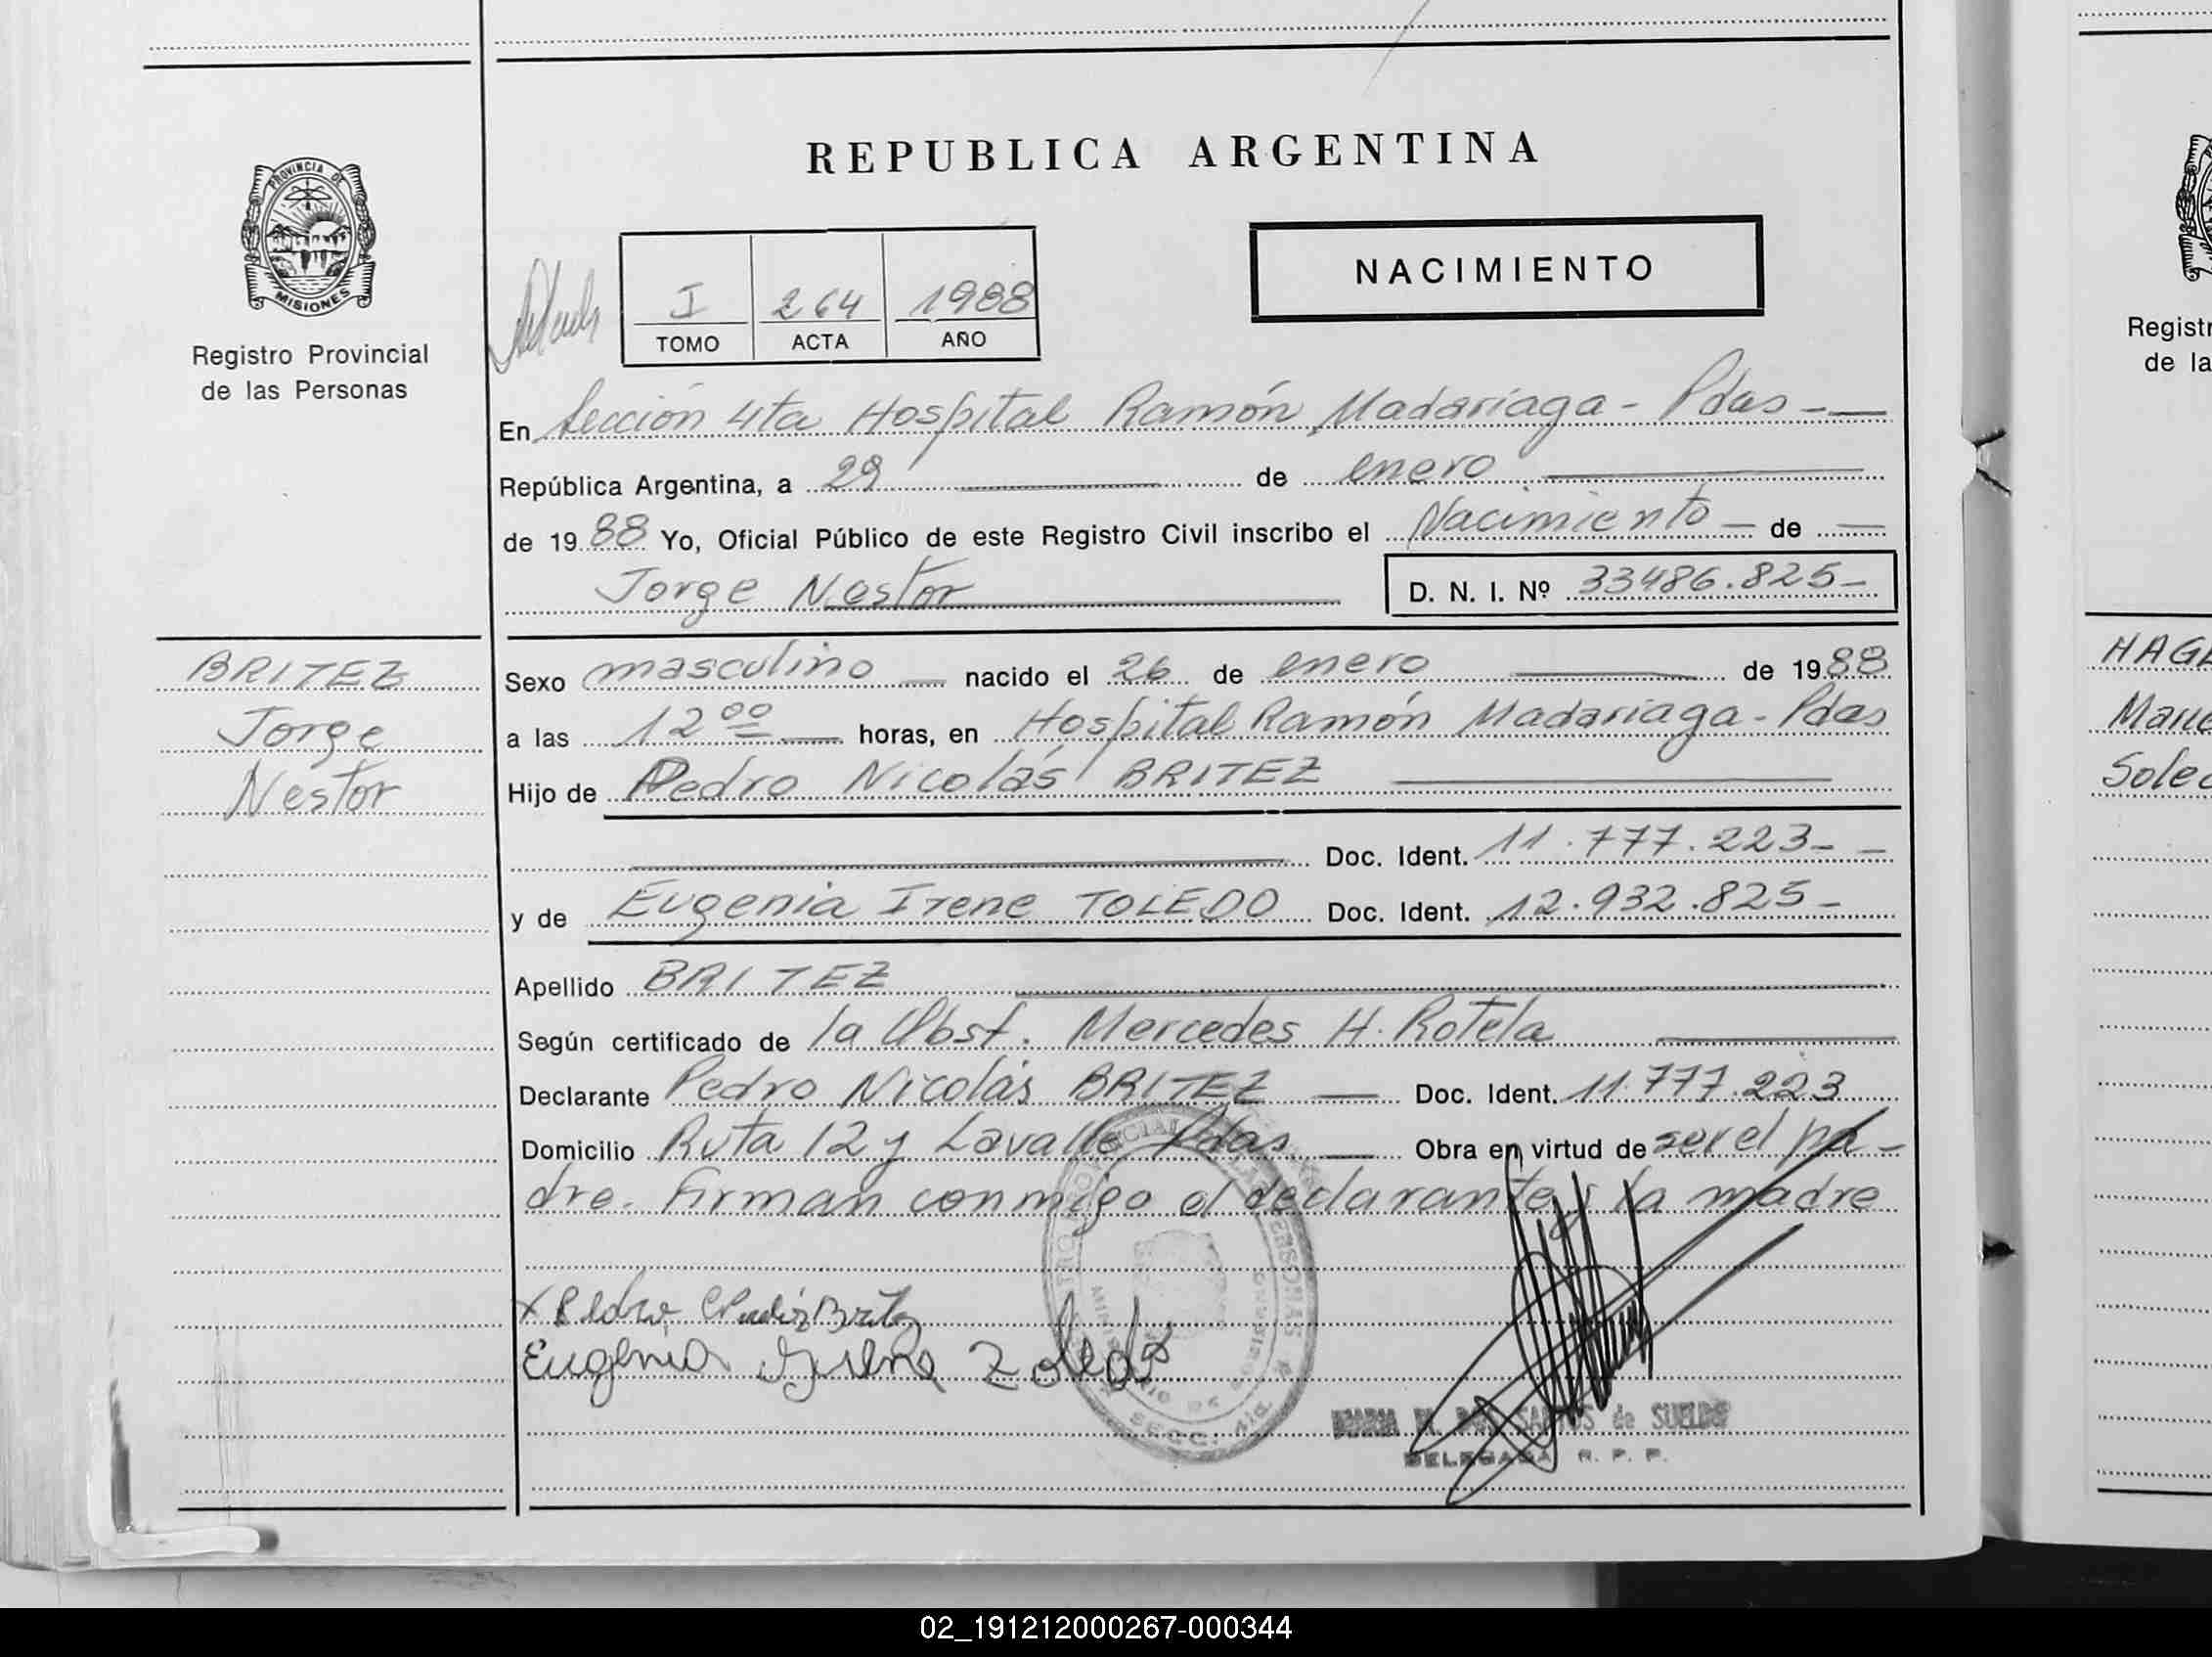 REPUBLICA ARGENTINA
PROVINCIA DE
MISIONES
Registro Provincial
de las Personas
I 264 1988
TOMO ACTA AÑO
NACIMIENTO
En Sección 4ta Hospital Ramón Madariaga - Pdas -
República Argentina, a 29 de enero
de 1988 Yo, Oficial Público de este Registro Civil inscribo el Nacimiento de
Jorge Nestor D. N. I. Nº 33486.825-
BRITEZ
Jorge
Nestor
Sexo masculino nacido el 26 de enero de 1988
a las 12 00 horas, en Hospital Ramón Madariaga - Pdas
Hijo de Pedro Nicolás BRITEZ
Doc. Ident. 11.777.223-
y de Eugenia Irene TOLEDO Doc. Ident. 12.932.825-
Apellido BRITEZ
Según certificado de la Obst. Mercedes H. Rotela
Declarante Pedro Nicolás BRITEZ Doc. Ident. 11.777.223
Domicilio Ruta 12 y Lavalle Pdas Obra en virtud de ser el pa-
dre. Firman conmigo el declarante y la madre
Eugenia Toledo
SECC. 4ta.
SANTOS de SUELDO
DELEGADA R. P. P.
Registr
de la
HAGE
Solec
02_191212000267-000344